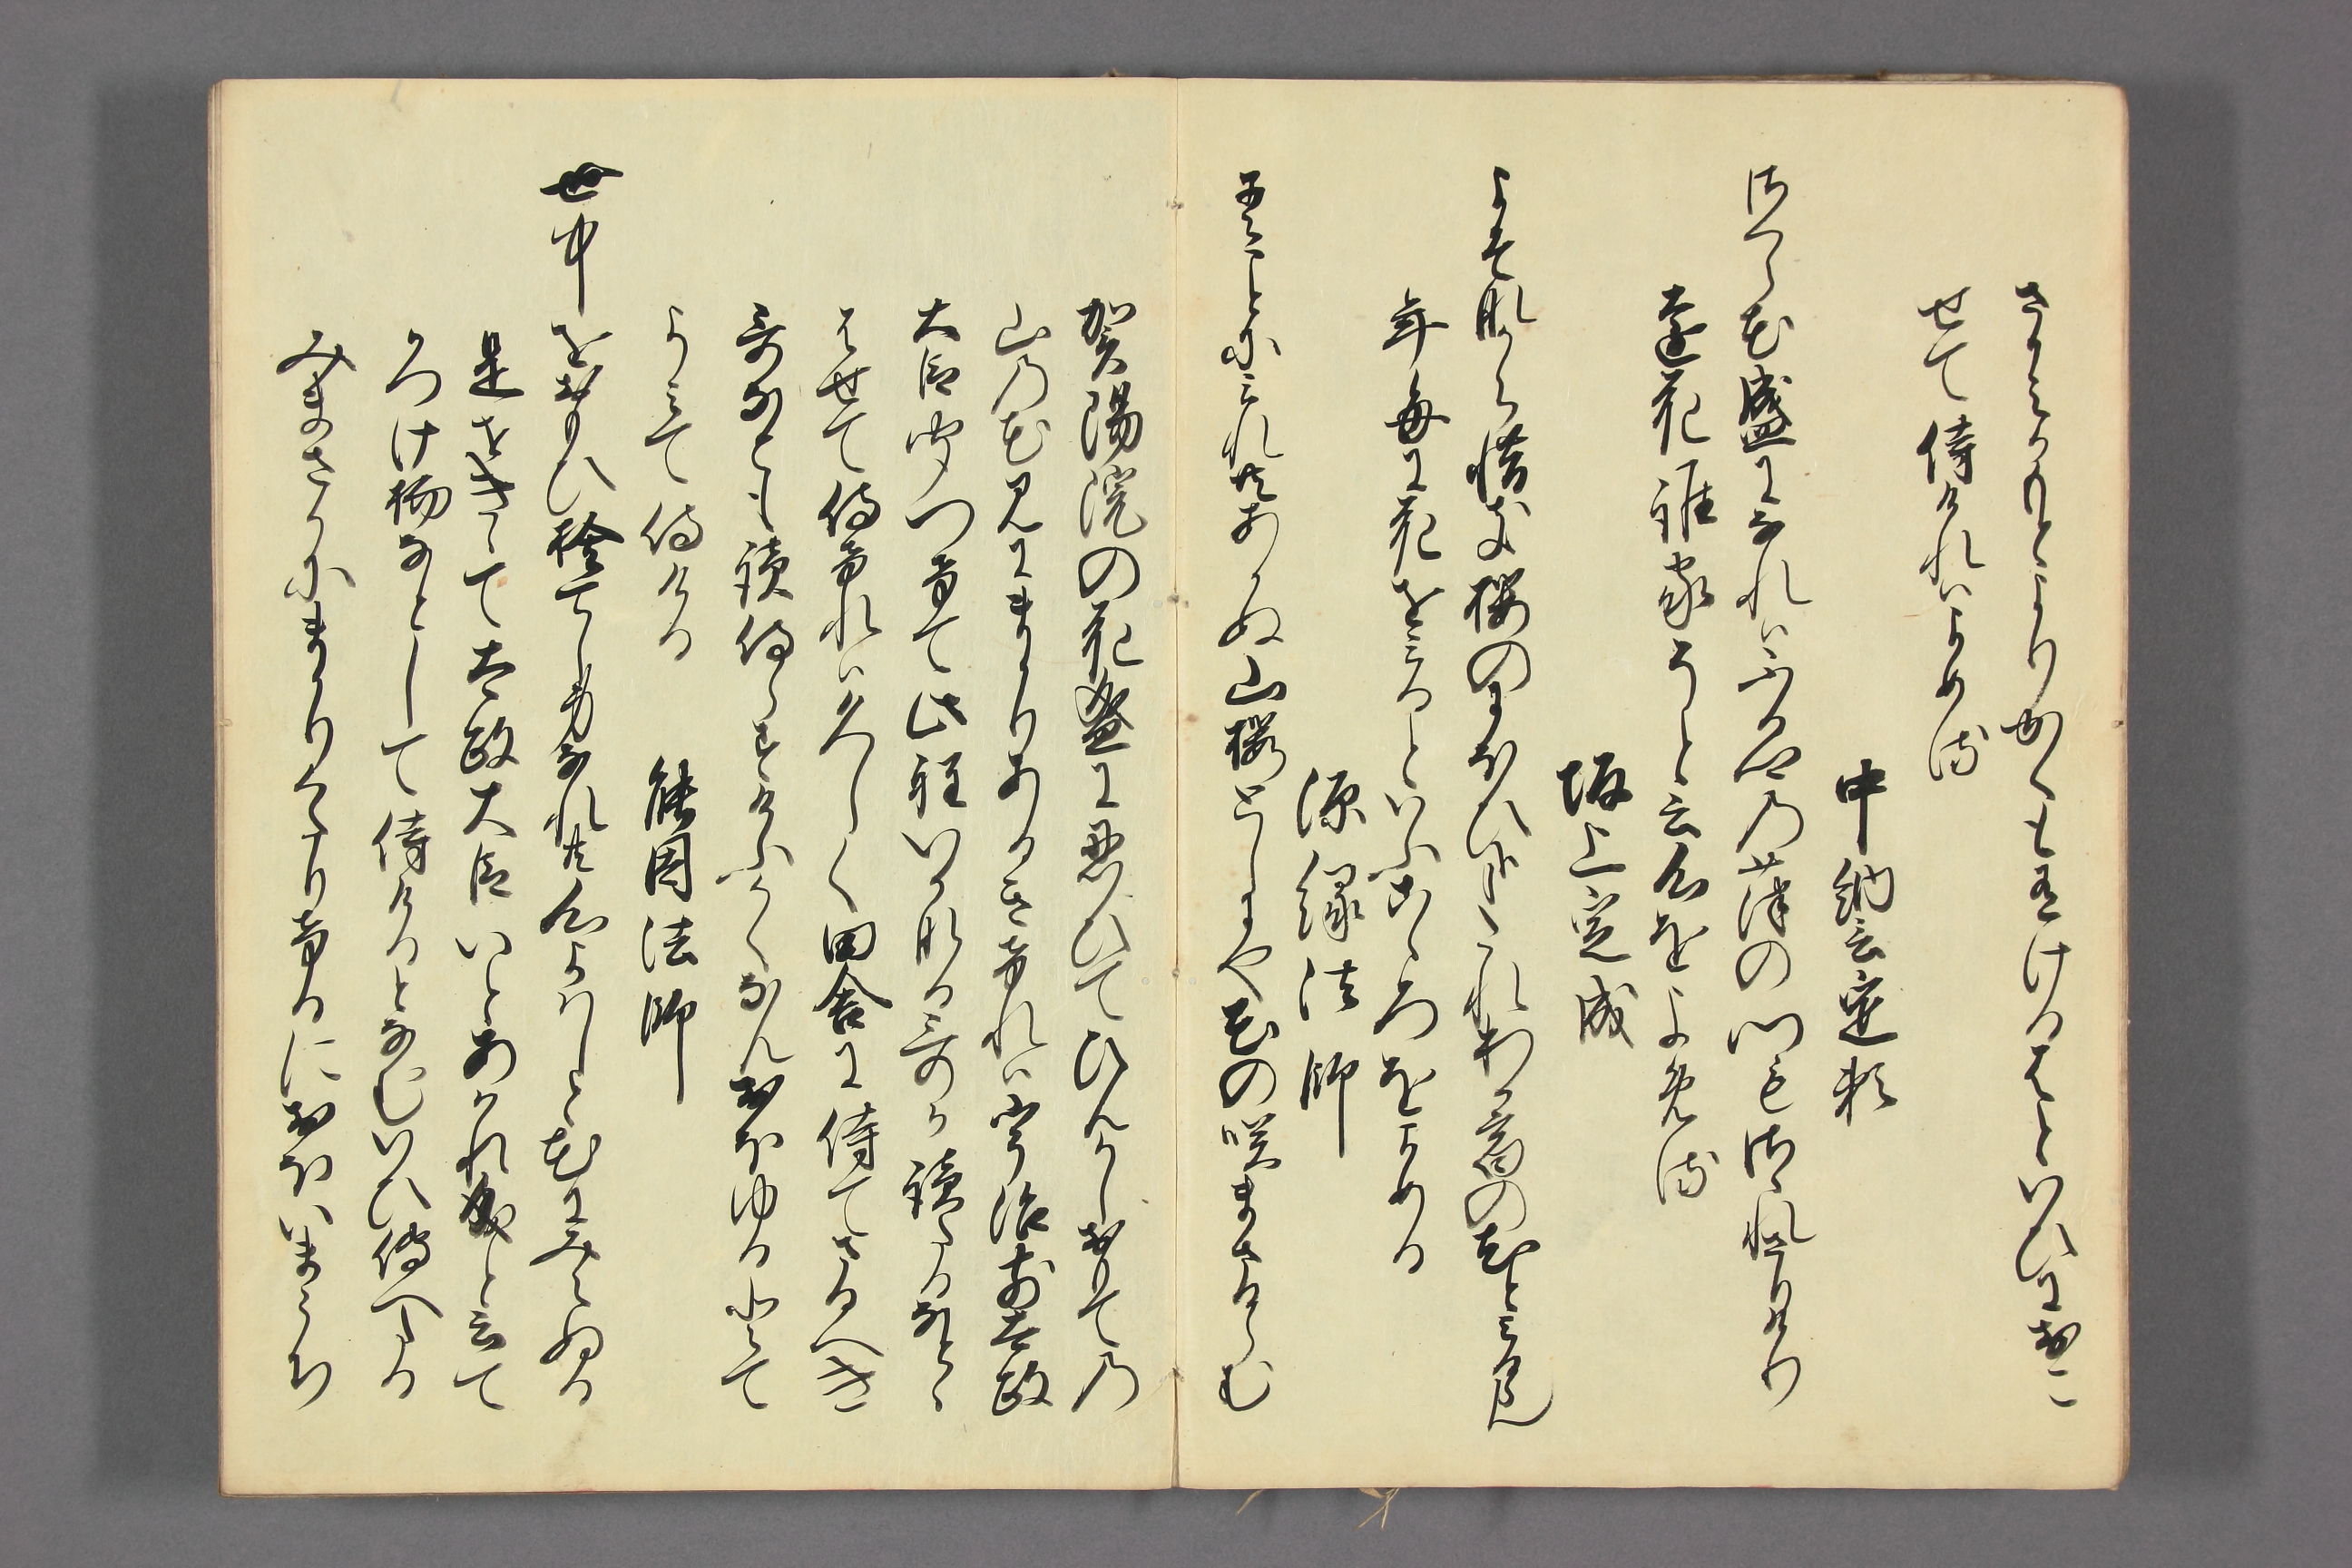 さかみかもとよりかくも有けるはといひにおこ
せて侍けれはよめる
中納言定頼
さくら花盛になれはふる郷乃葎の門もさゝれさりけり
遠花誰家そと云心をよめる
坂上定成
よそなから惜き桜のにほひかなたれわか宿の花とみるらん
年毎に花をみるといふこゝろをよめる
源縁法師
春ことにみれともあかぬ山桜としにや花の咲まさるらむ
賀陽院の花盛に忍ひてひんかしおもての
山の花見にまかりありきけれは宇治前太政
大臣聞つけて此程いかなる哥か読たるなとゝ
はせて侍けれは久しく田舎に侍てさるへき
哥なとも読侍らすけふかくなんおほゆるとて
よみて侍ける
能因法師
世中をおもひ捨てし身なれとも心よはしと花にみえぬる
是をきゝて太政大臣いとあはれ也と云て
かつけ物なとして侍けるとなむいひ伝へたる
みまさかにまかりくたりけるにおほいまうち